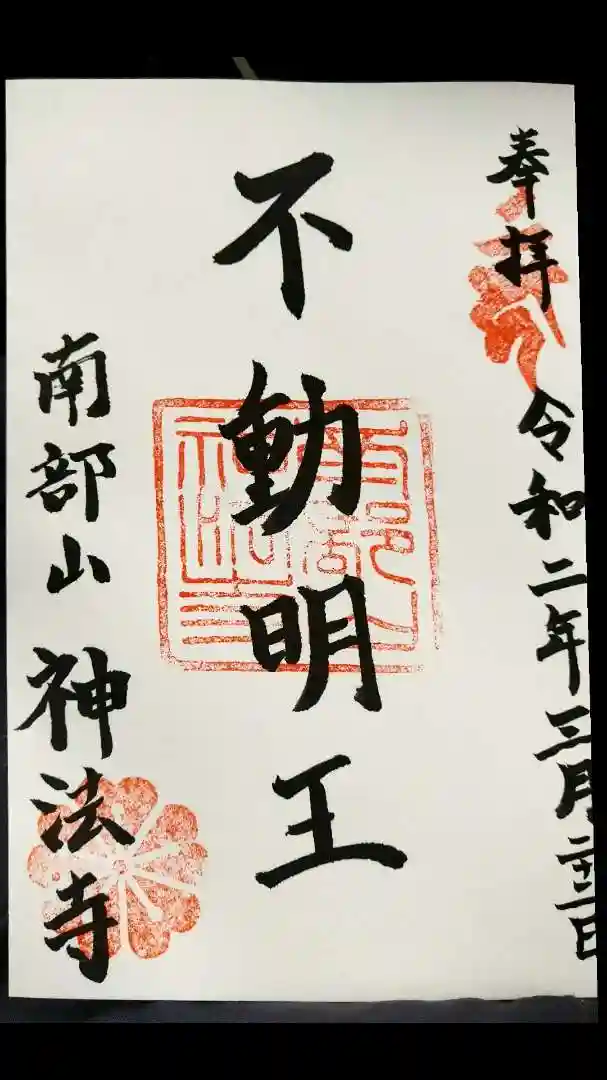 奉拝
令和二年三月二十二日
不動明王
南部山 神法寺